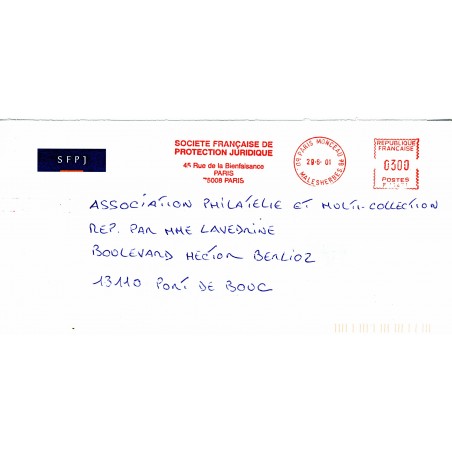 SFPJ
SOCIETE FRANÇAISE DE
PROTECTION JURIDIQUE
45 Rue de la Bienfaisance
PARIS
75008 PARIS
PARIS MONCEAU
29-6-01
MALESHERBES
REPUBLIQUE
FRANÇAISE
0300
POSTES
ASSOCIATION PHILATELIE ET MULTI-COLLECTION
REP. PAR MME LAVEDRINE
BOULEVARD HECTOR BERLIOZ
13110 PORT DE BOUC